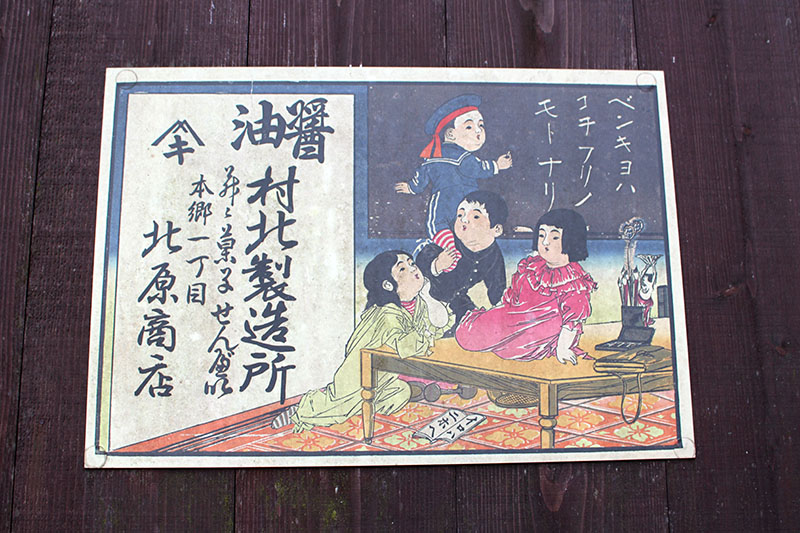 ベンキヨハ
コチフリノ
モトナリ
醤油
村北製造所
菓子せん
本郷一丁目
北原商店
キ